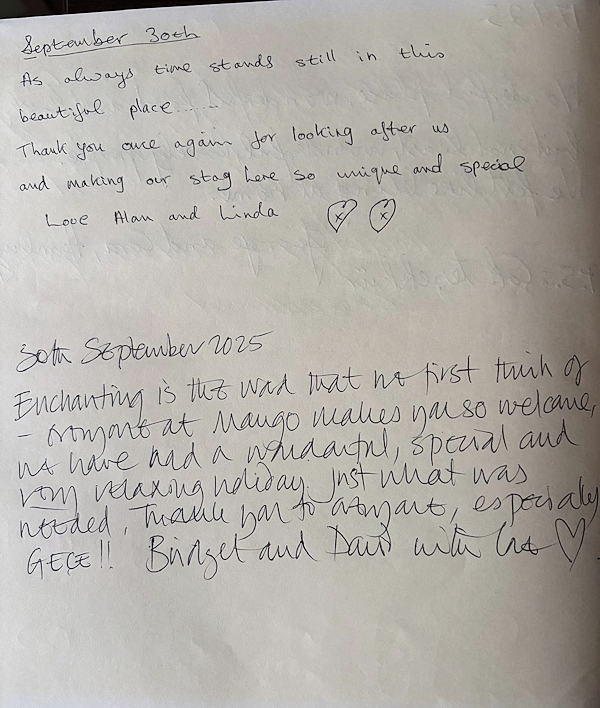 September 30th
As always time stands still in this
beautiful place......
Thank you once again for looking after us
and making our stay here so unique and special
Love Alan and Linda x x
30th September 2025
Enchanting is the word that we first think of
– everyone at Mango makes you so welcome,
we have had a wonderful, special and
very relaxing holiday. Just what was
needed, Thank you to everyone, especially
GECE!! Bridget and David with love ♡